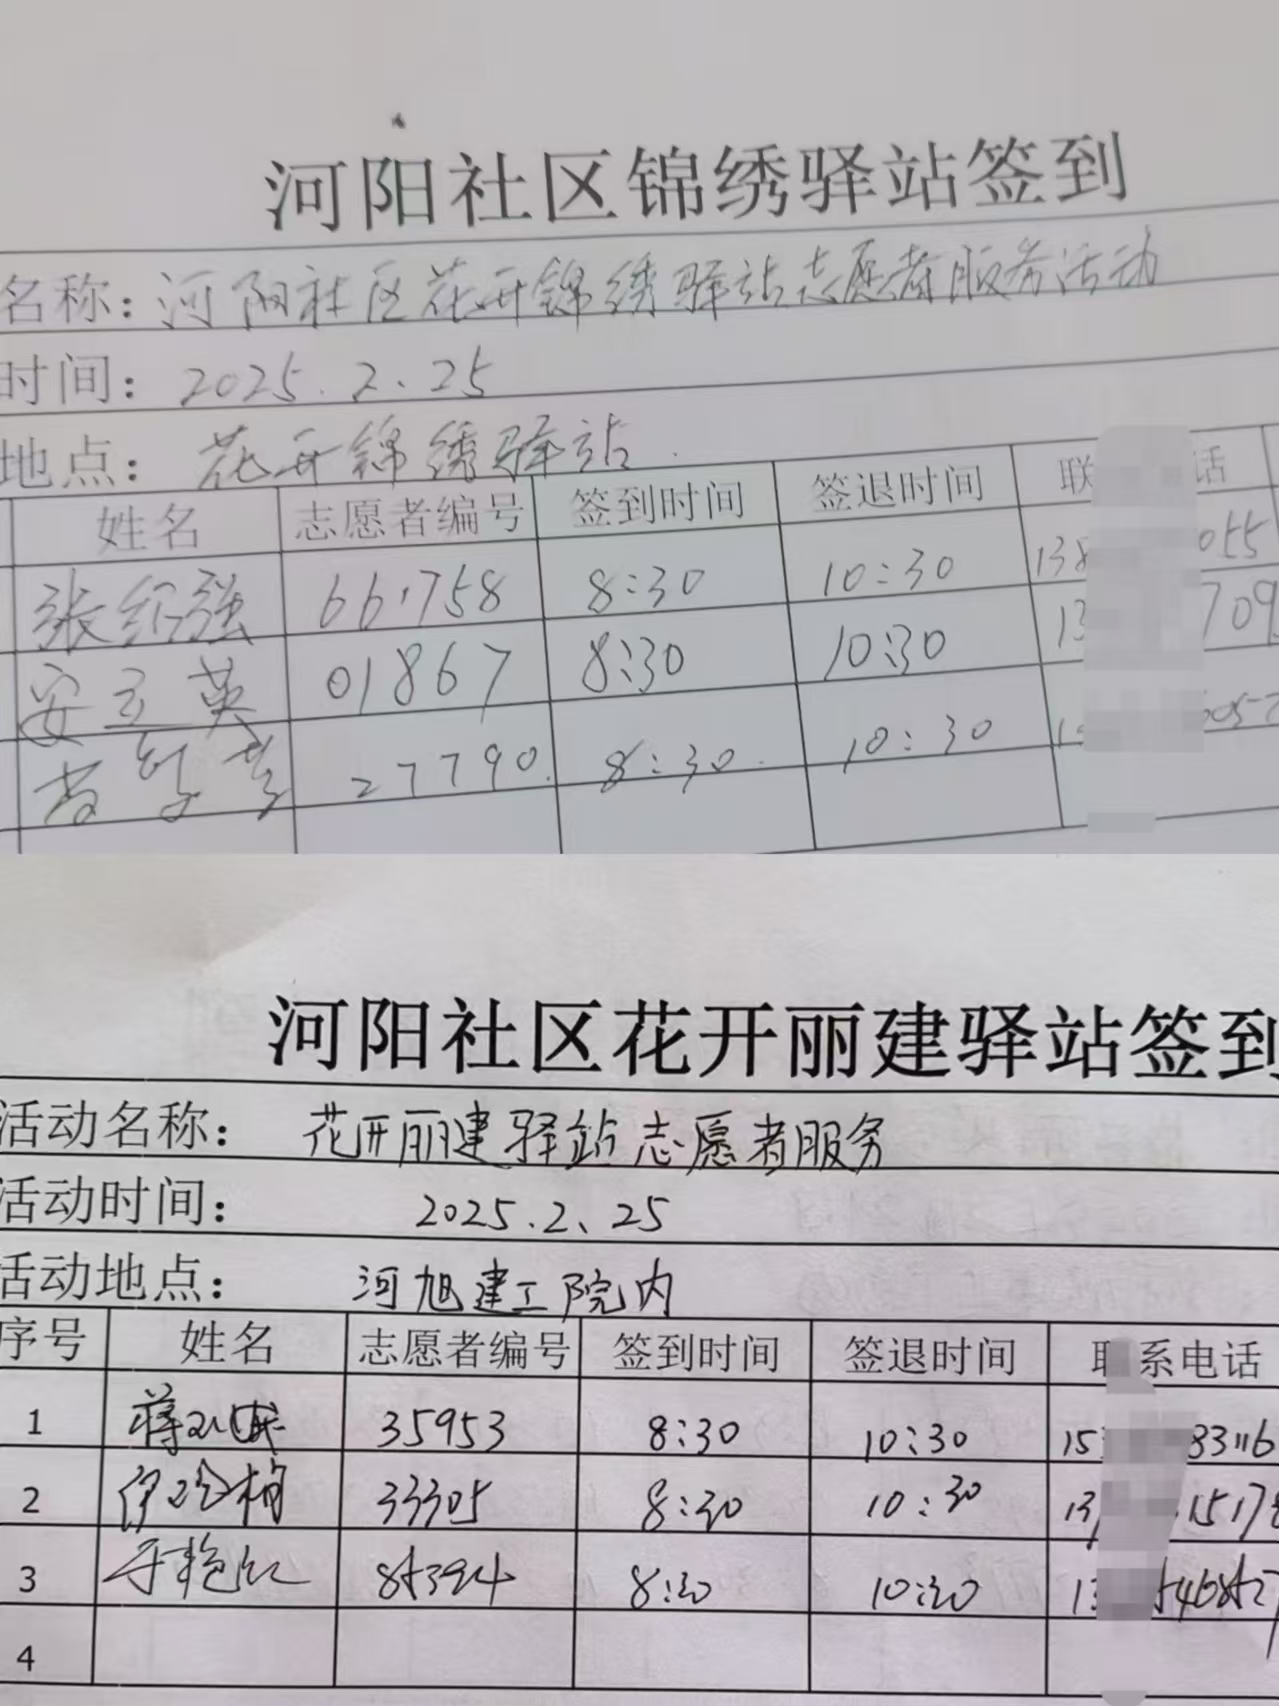 河阳社区锦绣驿站签到
名称：河阳社区花开锦绣驿站志愿者服务活动
时间：2025.2.25
地点：花开锦绣驿站
姓名 志愿者编号 签到时间 签退时间 联 话
张红强 661758 8:30 10:30 138 055
安立英 01867 8:30 10:30 13 709
27790 8:30 10:30 1 6057
河阳社区花开丽建驿站签到
活动名称：花开丽建驿站志愿者服务
活动时间：2025.2.25
活动地点：河旭建工院内
序号 姓名 志愿者编号 签到时间 签退时间 联系电话
1 35953 8:30 10:30 15 83116
2 33305 8:30 10:30 13 15178
3 于艳红 85394 8:30 10:30 13 546852
4